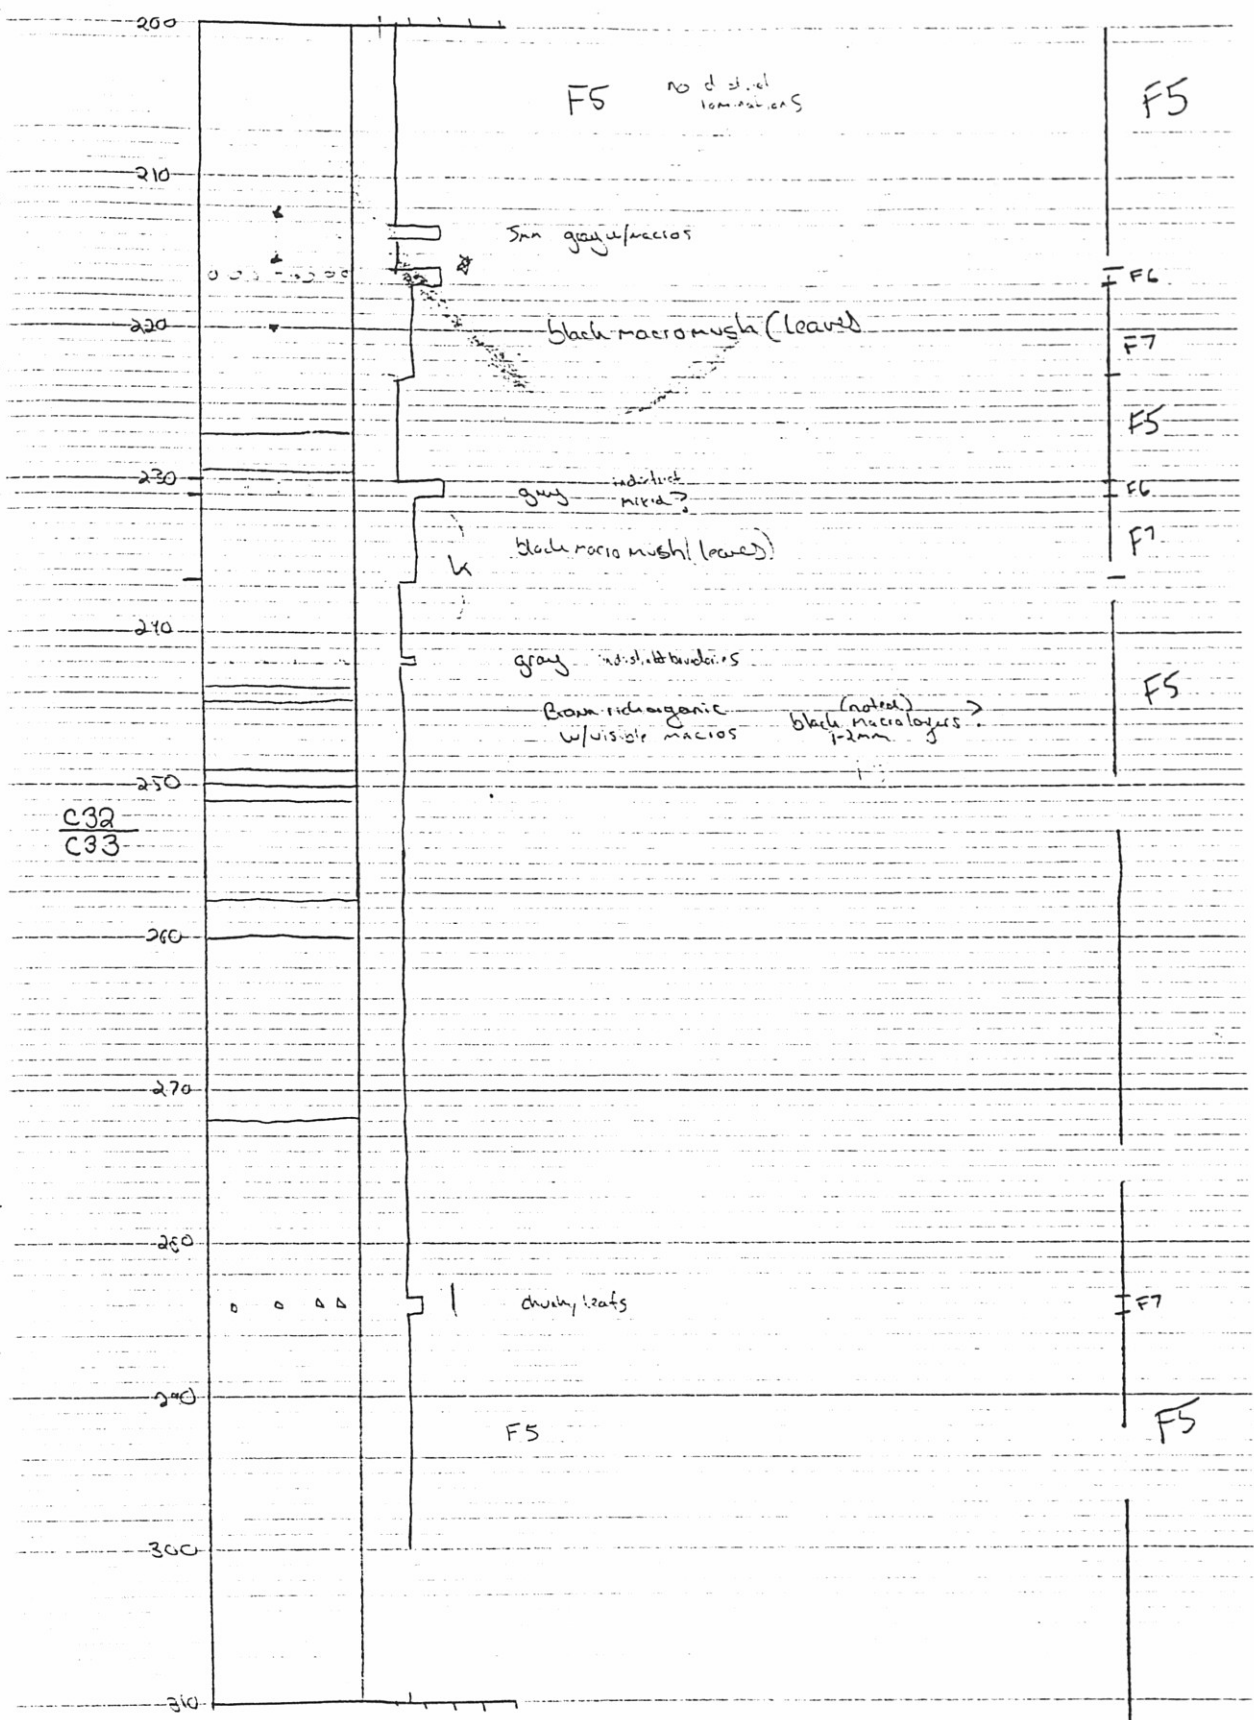 200
F5 no
laminations
F5
210
5mm gray w/macros
F6
220
black macro mush (leaves
F7
F5
230
gray indistinct
mixed?
F6
black macro mush (leaves)
F7
k
240
gray indistinct boundaries
F5
Brown rich organic (noted)
w/visible macros black macro layers ?
1-2mm
250
C32
C33
260
270
280
chunky leafs
F7
290
F5
F5
300
310